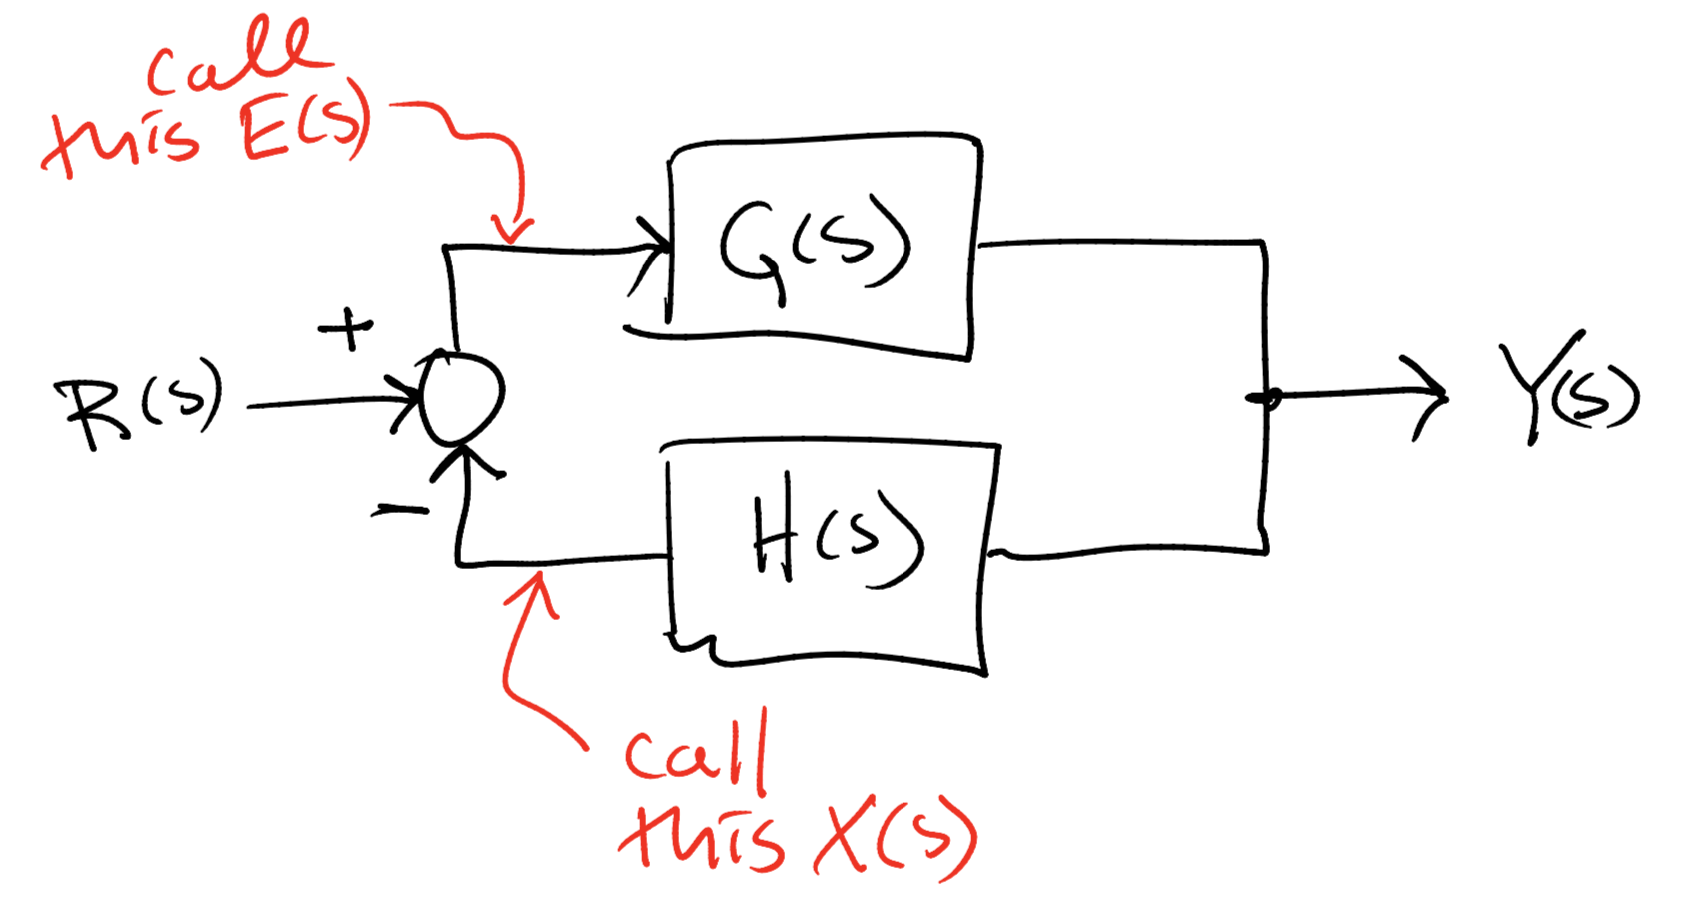 call
this E(s)
G(s)
+
R(s)
Y(s)
−
H(s)
call
this X(s)